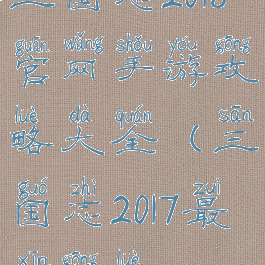 三国志2018
guān wǎng shǒu yóu gōng
官网手游攻
lüè dà quán sān
略大全（三
guó zhì zuì
国志2017最
xīn gōng lüè